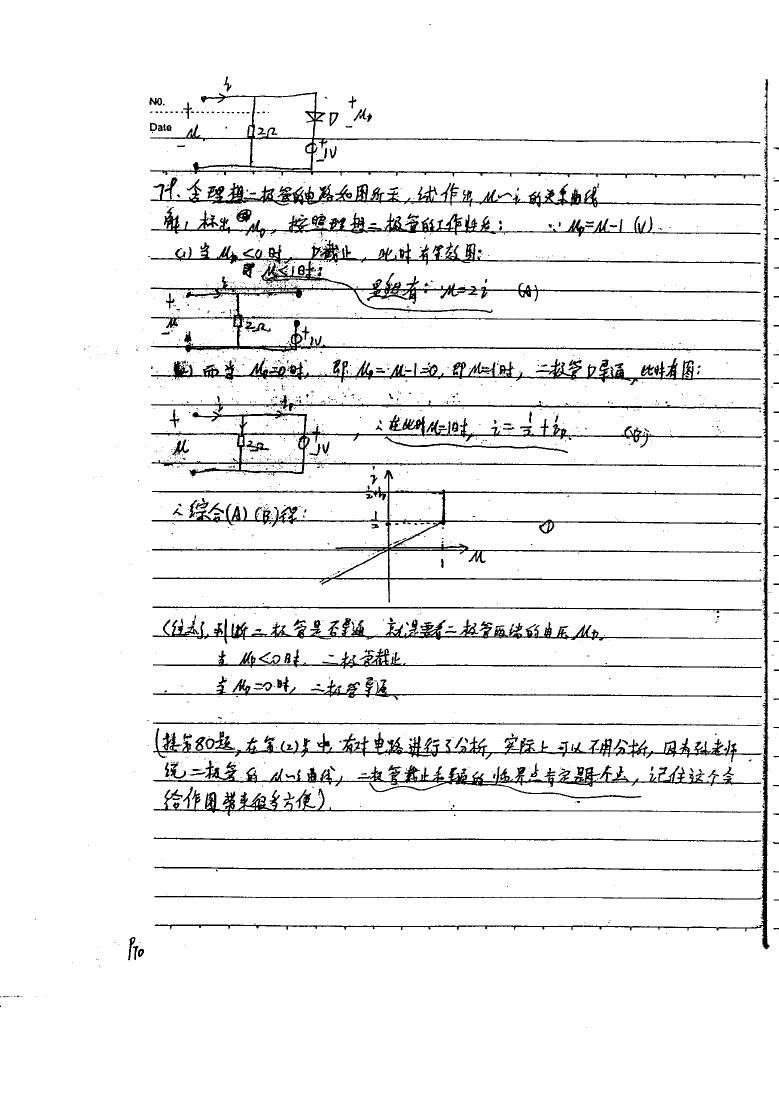 i
NO.
Date
+ u - 2Ω D + u_D - + 1V -
79. 含理想二极管的电路如图所示，试作出 u~i 的关系曲线
解：标出 u_D，按照理想二极管的工作特点： ∵ u_D=u-1 (V).
(1) 当 u_D<0时，D截止，此时有等效图：
即 u<1时： 显然有：u=2i (A)
+ u - 2Ω + 1V -
(2) 而当 u_D=0时，即 u_D=u-1=0，即 u=1时，二极管D导通，此时有图：
i i_D
+ u - 2Ω + 1V - ，∴在此时u=1时，i=1/2+i_D. (B)
∴综合(A)(B)得： i 1/2+i_D 1/2 1 u ①
判断二极管是否导通，就是要看二极管两端的电压 u_D.
当 u_D<0时，二极管截止.
当 u_D=0时，二极管导通、
(接第80题，在第(2)步中，有对电路进行了分析，实际上可以不用分析，因为孙老师
说二极管的 u~i曲线，二极管截止和导通的临界点肯定是 ，记住这个会
给作图带来很多方便).
PTO